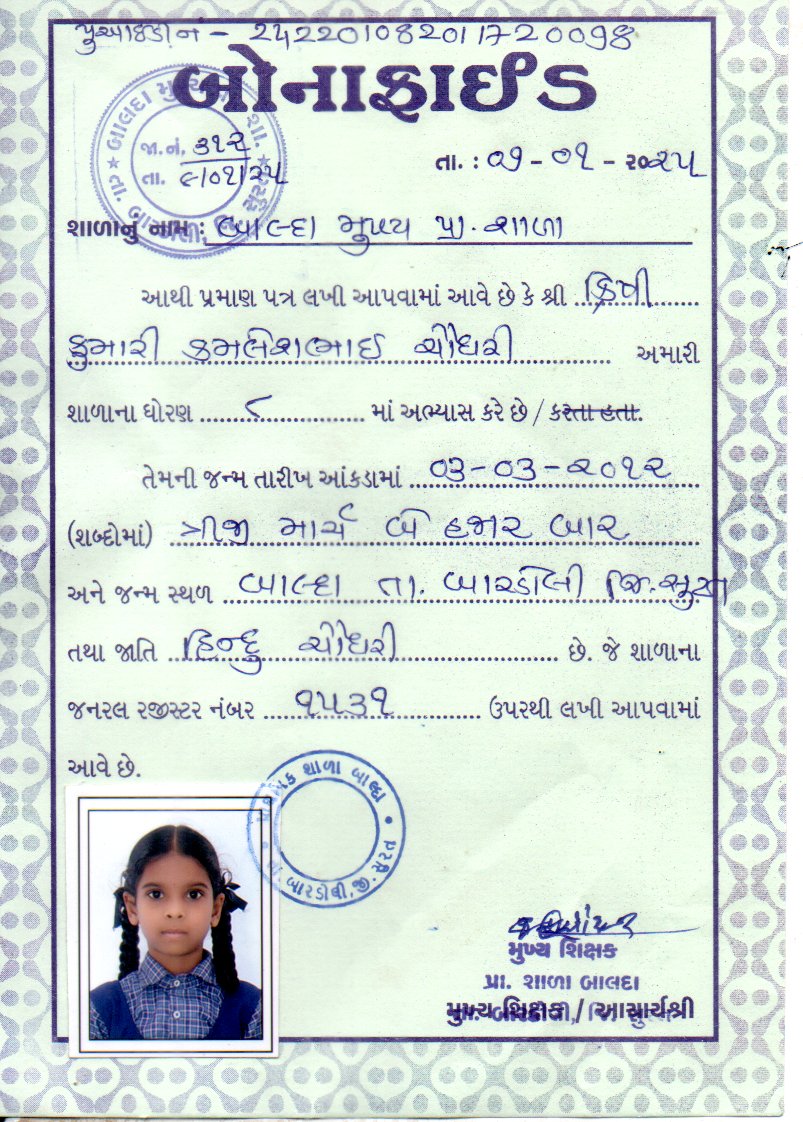 પુઆઈડી નં - 242201082011720098
બોનાફાઈડ
જા.નં. ૩૧૨
તા. ૯/૦૧/૨૫
તા. : ૦૧ - ૦૧ - ૨૦૨૫
શાળાનું નામ : બાલ્દા મુખ્ય પ્રા. શાળા
આથી પ્રમાણ પત્ર લખી આપવામાં આવે છે કે શ્રી ક્રિષી
કુમારી કમલેશભાઈ ચૌધરી અમારી
શાળાના ધોરણ ૮ માં અભ્યાસ કરે છે / કરતા હતા.
તેમની જન્મ તારીખ આંકડામાં ૦૩-૦૩-૨૦૧૨
(શબ્દોમાં) ત્રીજી માર્ચ બે હજાર બાર
અને જન્મ સ્થળ બાલ્દા તા. બારડોલી જિ. સુરત
તથા જાતિ હિન્દુ ચૌધરી છે. જે શાળાના
જનરલ રજીસ્ટર નંબર ૧૫૩૧ ઉપરથી લખી આપવામાં
આવે છે.
પ્રાથમિક શાળા બાલ્દા
તા. બારડોલી, જી. સુરત
મુખ્ય શિક્ષક
પ્રા. શાળા બાલદા
મુખ્ય શિક્ષક / આચાર્યશ્રી